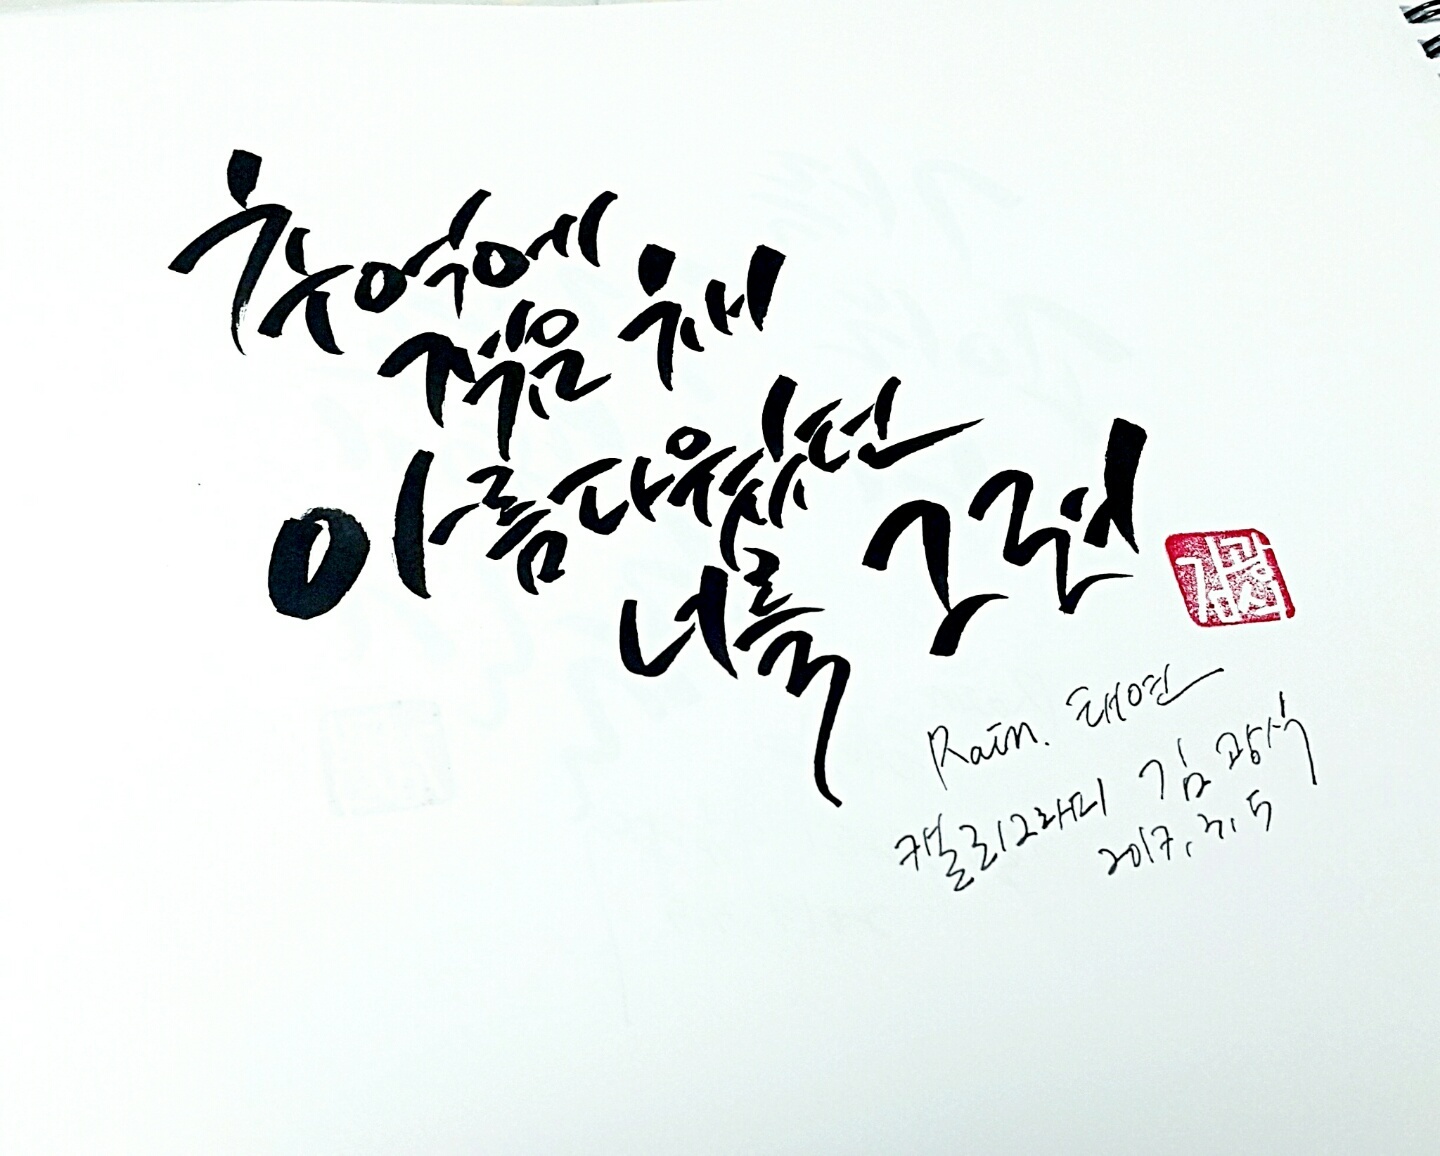 추억에
젖은 채
아름다웠던
너를 그려
김광석
Rain. 태연
캘리그래피 김광석
2017. 3. 5